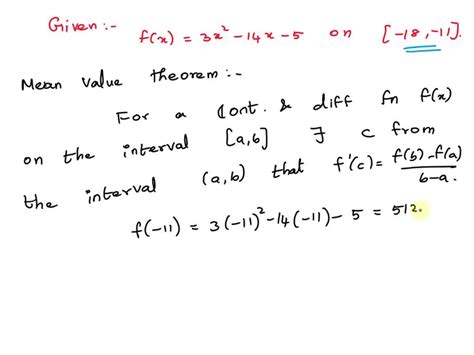 Given:- f(x) = 3x² - 14x - 5 on [-18, -11].
Mean value theorem:-
For a Cont. & diff fn f(x)
on the interval [a,b] ∃ c from
the interval (a,b) that f'(c) = f(b) - f(a) / b-a.
f(-11) = 3(-11)² - 14(-11) - 5 = 512.